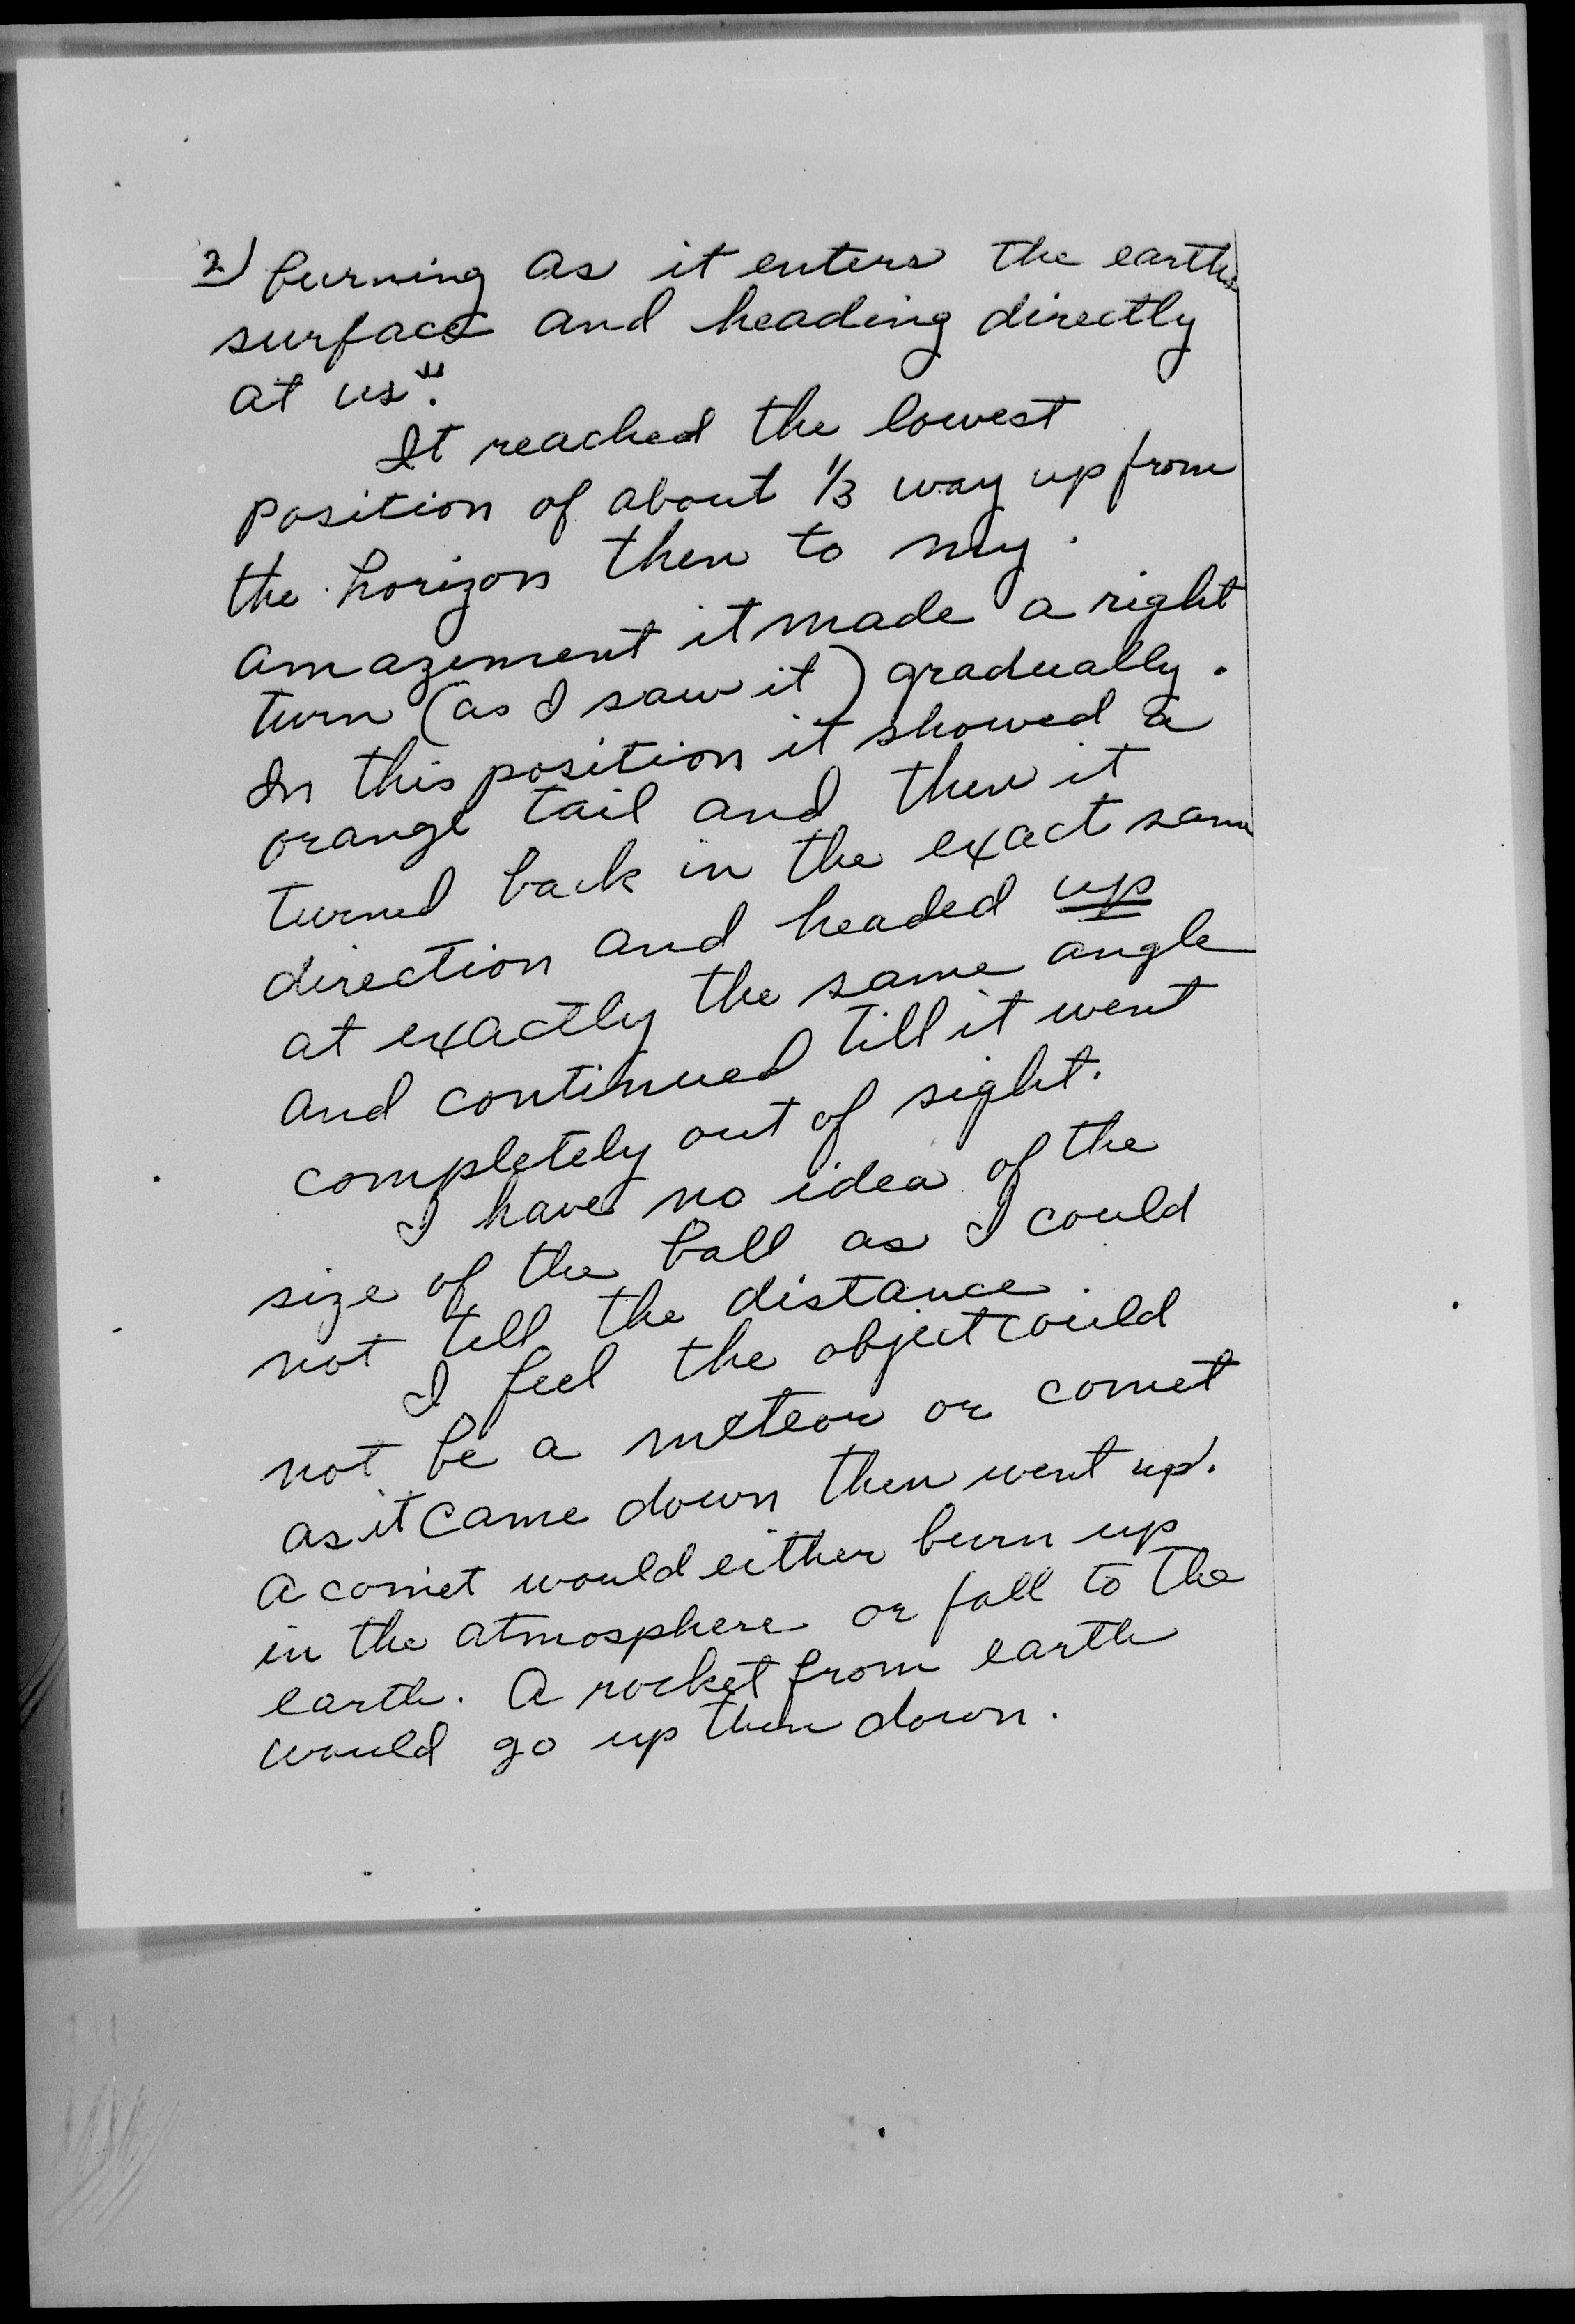 2) burning as it enters the earths
surface and heading directly
at us".
It reached the lowest
position of about 1/3 way up from
the horizon then to my
amazement it made a right
turn (as I saw it) gradually.
In this position it showed a
orange tail and then it
turned back in the exact same
direction and headed up
at exactly the same angle
and continued till it went
completely out of sight.
I have no idea of the
size of the ball as I could
not tell the distance.
I feel the object could
not be a meteor or comet
as it came down then went up.
A comet would either burn up
in the atmosphere or fall to the
earth. A rocket from earth
would go up then down.